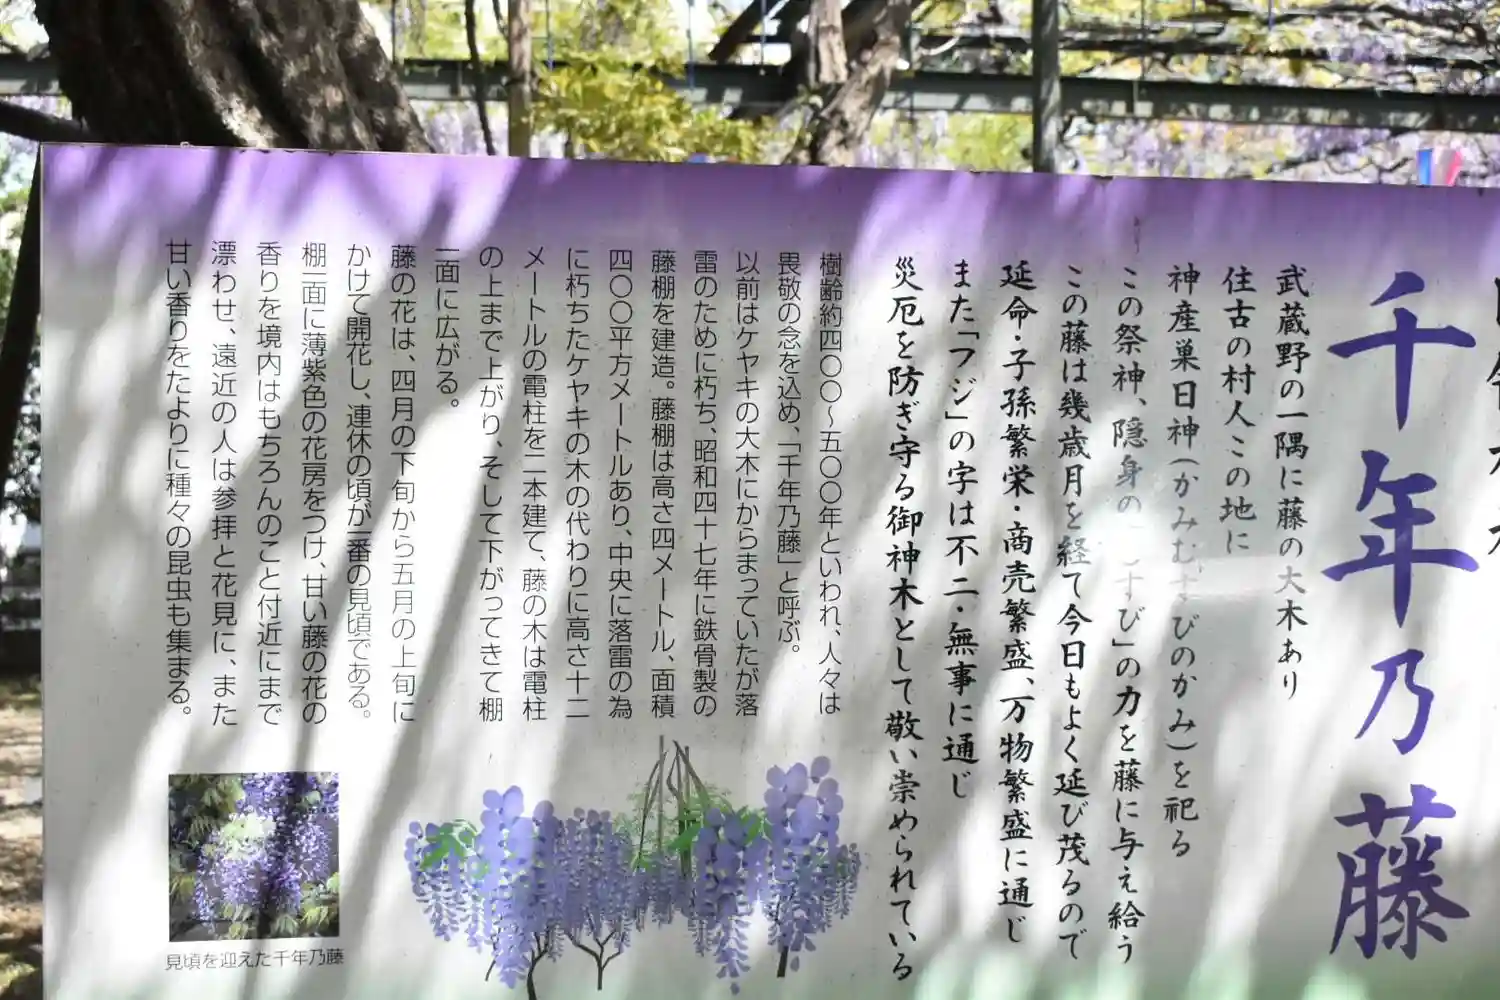 千年乃藤
武蔵野の一隅に藤の大木あり
住古の村人この地に
神産巣日神(かみむすびのかみ)を祀る
この祭神、隠身の「むすび」の力を藤に与え給う
この藤は幾歳月を経て今日もよく延び茂るので
延命・子孫繁栄・商売繁盛、万物繁盛に通じ
また「フジ」の字は不二・無事に通じ
災厄を防ぎ守る御神木として敬い崇められている
樹齢約四〇〇～五〇〇年といわれ、人々は
畏敬の念を込め、「千年乃藤」と呼ぶ。
以前はケヤキの大木にからまっていたが落
雷のために朽ち、昭和四十七年に鉄骨製の
藤棚を建造。藤棚は高さ四メートル、面積
四〇〇平方メートルあり、中央に落雷の為
に朽ちたケヤキの木の代わりに高さ十二
メートルの電柱を二本建て、藤の木は電柱
の上まで上がり、そして下がってきて棚
一面に広がる。
藤の花は、四月の下旬から五月の上旬に
かけて開花し、連休の頃が一番の見頃である。
棚一面に薄紫色の花房をつけ、甘い藤の花の
香りを境内はもちろんのこと付近にまで
漂わせ、遠近の人は参拝と花見に、また
甘い香りをたよりに種々の昆虫も集まる。
見頃を迎えた千年乃藤